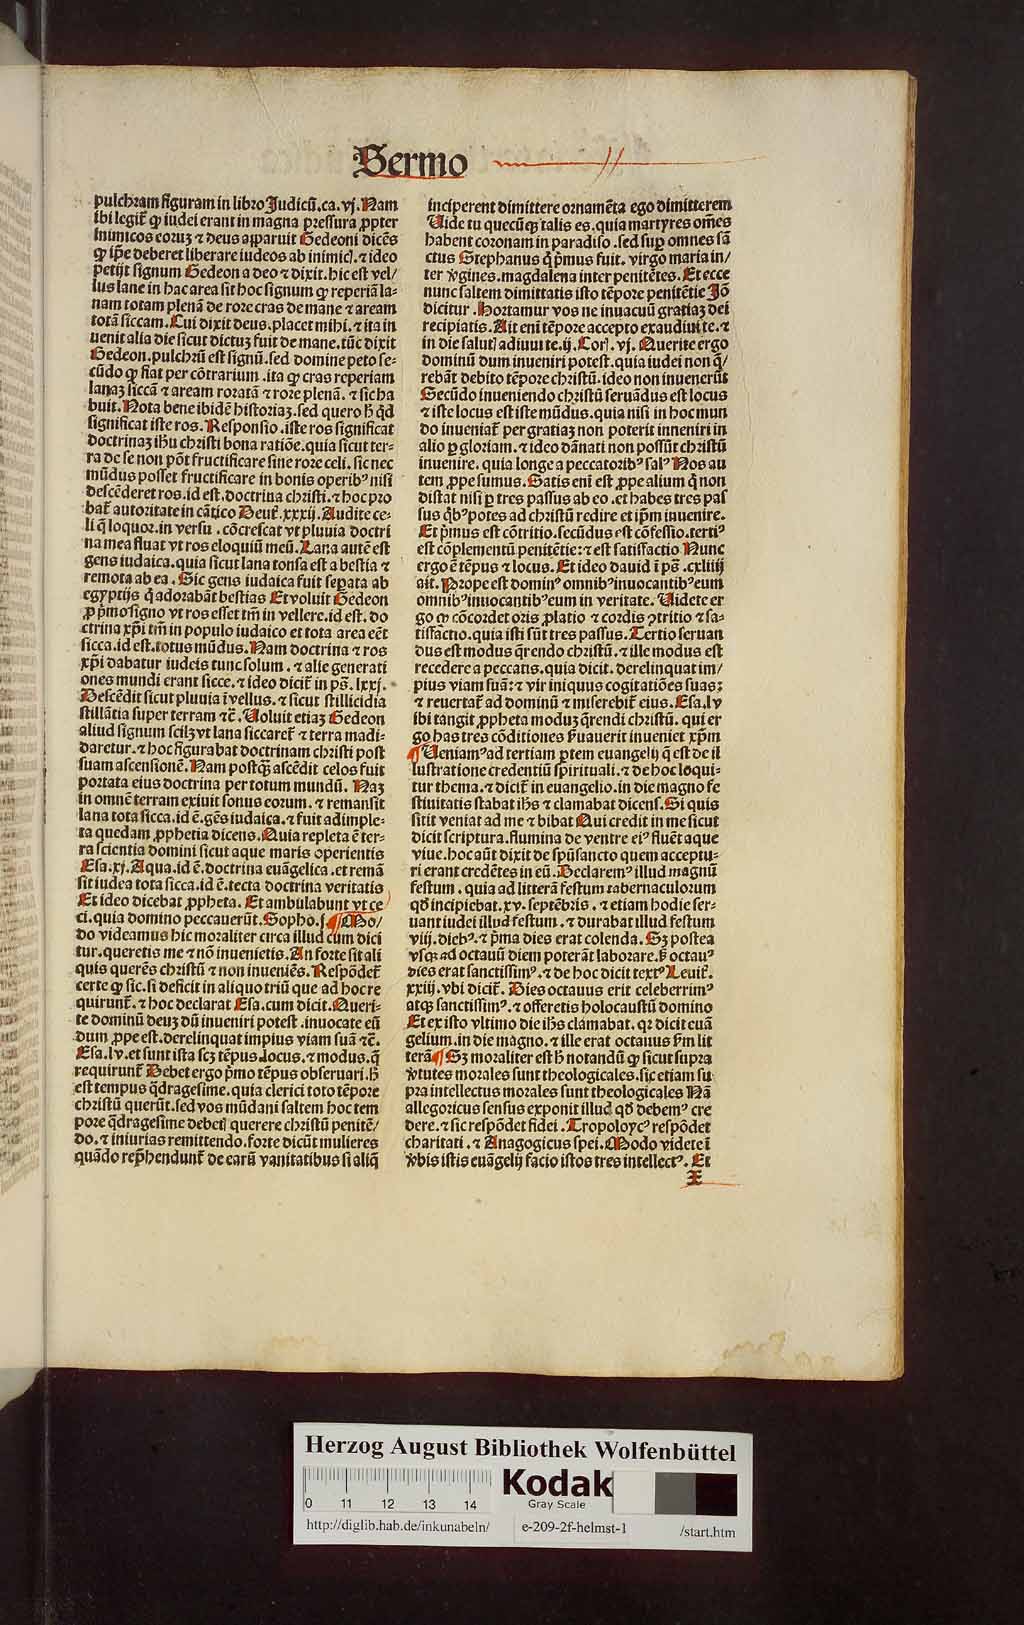 Sermo
pulchram figuram in libro Judicū.ca.vj. Nam
ibi legit͛ ꝙ iudei erant in magna pressura ꝓpter
inimicos eoruꝫ ⁊ deus apparuit Gedeoni dicēs
ꝙ ip̄e deberet liberare iudeos ab inimicꝭ.⁊ ideo
petijt signum Gedeon a deo ⁊ dixit.hic est vel/
lus lane in hac area sit hoc signum ꝙ reperiā la-
nam totam plenā de rore cras de mane ⁊ aream
totā siccam.Cui dixit deus.placet mihi.⁊ ita in
uenit alia die sicut dictuꝫ fuit de mane.tūc dixit
Gedeon.pulchrū est signū.sed domine peto se-
cūdo ꝙ fiat per cōtrarium.ita ꝙ cras reperiam
lanaꝫ siccā ⁊ aream roratā ⁊ rore plenā.⁊ sic ha
buit.Nota bene ibidē historiaꝫ.sed quero ħ qͥd
significat iste ros.Responsio.iste ros significat
doctrinaꝫ ihū christi bona ratiōe.quia sicut ter-
ra de se non pōt fructificare sine rore celi.sic nec
mūdus posset fructificare in bonis operibꝰ nisi
descēderet ros.id est.doctrina christi.⁊ hoc pro
bat͛ autoritate in cātico Deut͛.xxxij.Audite ce-
li q̄ loquor.in versu.cōcrescat vt pluuia doctri
na mea fluat vt ros eloquiū meū.Lana autē est
gens iudaica.quia sicut lana tonsa est a bestia ⁊
remota ab ea.Sic gens iudaica fuit sepata ab
egyptijs q̄ adorabāt bestias Et voluit Gedeon
ꝓ pͥmo signo vt ros esset tm̄ in vellere.id est.do
ctrina xp̄i tm̄ in populo iudaico et tota area eēt
sicca.id est.totus mūdus.Nam doctrina ⁊ ros
xp̄i dabatur iudeis tunc solum.⁊ alie generati
ones mundi erant sicce.⁊ ideo dicit͛ in ps̄.lxxj.
Descēdit sicut pluuia ī vellus.⁊ sicut stillicidia
stillātia super terram ⁊c̄.Voluit etiaꝫ Gedeon
aliud signum scilꝫ vt lana siccaret͛ ⁊ terra madi-
daretur.⁊ hoc figurabat doctrinam christi post
suam ascensionē.Nam postqͣꝫ ascēdit celos fuit
portata eius doctrina per totum mundū.Naꝫ
in omnē terram exiuit sonus eorum.⁊ remansit
lana tota sicca.id ē.gēs iudaica.⁊ fuit adimple-
ta quedam ꝓphetia dicens.Quia repleta ē ter-
ra scientia domini sicut aque maris operientis
Esa.xj.Aqua.id ē.doctrina euāgelica.et remā
sit iudea tota sicca.id ē.tecta doctrina veritatis
Et ideo dicebat ꝓpheta.Et ambulabunt vt ce
ci.quia domino peccauerūt.Sopho.j ¶Mo/
do videamus hic moraliter circa illud cum dici
tur.queretis me ⁊ nō inuenietis.An forte sit ali
quis querēs christū ⁊ non inueniēs.Respōdet͛
certe ꝙ sic.si deficit in aliquo triū que ad hoc re
quirunt͛.⁊ hoc declarat Esa.cum dicit.Queri-
te dominū deuꝫ dū inueniri potest.inuocate eū
dum ꝓpe est.derelinquat impius viam suā ⁊c̄.
Esa.lv.et sunt ista scꝫ tēpus.locus.⁊ modus.q̄
requirunt͛ Debet ergo pͥmo tēpus obseruari.ħ
est tempus qͣdragesime.quia clerici toto tēpore
christū querūt.sed vos mūdani saltem hoc tem
pore qͣdragesime debetꝭ querere christū penitē/
do.⁊ iniurias remittendo.forte dicūt mulieres
quādo rep̄hendunt͛ de earū vanitatibus si aliq̄
inciperent dimittere ornamēta ego dimitterem
Vide tu quecūqꝫ talis es.quia martyres om̄es
habent coronam in paradiso.sed suꝑ omnes sā
ctus Stephanus q̄ pͥmus fuit.virgo maria in/
ter ꝟgines.magdalena inter penitētes.Et ecce
nunc saltem dimittatis isto tēpore penitētie Jō
dicitur.Hortamur vos ne in vacuū gratiaꝫ dei
recipiatis.Ait enī tēpore accepto exaudiui te.⁊
in die salutꝭ adiuui te.ij.Corꝭ.vj.Querite ergo
dominū dum inueniri potest.quia iudei non q̄/
rebāt debito tēpore christū.ideo non inuenerūt
Secūdo inueniendo christū seruādus est locus
⁊ iste locus est iste mūdus.quia nisi in hoc mun
do inueniat͛ per gratiaꝫ non poterit inneniri in
alio ꝑ gloriam.⁊ ideo dānati non possūt christū
inuenire.quia longe a peccatoribꝰ salꝰ Nos au
tem ꝓpe sumus.Satis enī est ꝓpe alium q̄ non
distat nisi ꝑ tres passus ab eo.et habes tres pas
sus qͥbꝰ potes ad christū redire et ip̄m inuenire.
Et pͥmus est cōtritio.secūdus est cōfessio.tertiꝰ
est cōplementū penitētie:⁊ est satisfactio Nunc
ergo ē tēpus ⁊ locus.Et ideo dauid ī ps̄.cxliiij
ait.Prope est dominꝰ omnibꝰ inuocantibꝰ eum
omnibꝰ inuocantibꝰ eum in veritate.Videte er
go ꝙ cōcordet oris ꝓlatio ⁊ cordis ꝯtritio ⁊ sa-
tisfactio.quia isti sūt tres passus.Tertio seruan
dus est modus q̄rendo christū.⁊ ille modus est
recedere a peccatis.quia dicit.derelinquat im/
pius viam suā:⁊ vir iniquus cogitatiōes suas;
⁊ reuertat͛ ad dominū ⁊ miserebit͛ eius.Esa.lv
ibi tangit ꝓpheta moduꝫ q̄rendi christū.qui er
go has tres cōditiones ẜuauerit inueniet xp̄m
¶Veniamꝰ ad tertiam ꝑtem euangelij q̄ est de il
lustratione credentiū spirituali.⁊ de hoc loqui-
tur thema.⁊ dicit͛ in euangelio.in die magno fe
stiuitatis stabat ihs̄ ⁊ clamabat dicens.Si quis
sitit veniat ad me ⁊ bibat Qui credit in me sicut
dicit scriptura.flumina de ventre eiꝰ fluēt aque
viue.hoc aūt dixit de spū sancto quem acceptu-
ri erant credētes in eū.Declaremꝰ illud magnū
festum.quia ad litterā festum tabernaculorum
qd̄ incipiebat.xv.septēbris.⁊ etiam hodie ser-
uant iudei illud festum.⁊ durabat illud festum
viij.diebꝰ.⁊ pͥma dies erat colenda.Sꝫ postea
vsqꝫ ad octauū diem poterāt laborare.ꝫ octauꝰ
dies erat sanctissimꝰ.⁊ de hoc dicit textꝰ Leuit͛.
xxiij.vbi dicit͛.Dies octauus erit celeberrimꝰ
atqꝫ sanctissimꝰ.⁊ offeretis holocaustū domino
Et ex isto vltimo die ihs̄ clamabat.qꝛ dicit euā
gelium.in die magno.⁊ ille erat octauus ẜm lit
terā ¶Sꝫ moraliter est ħ notandū ꝙ sicut supra
ꝟtutes morales sunt theologicales.sic etiam su
pra intellectus morales sunt theologicales Nā
allegoricus sensus exponit illud qd̄ debemꝰ cre
dere.⁊ sic respōdet fidei.Tropoloycꝰ respōdet
charitati.⁊ Anagogicus spei.Modo videte ī
ꝟbis istis euāgelij facio istos tres intellectꝰ.Et
X
Herzog August Bibliothek Wolfenbüttel
Kodak
Gray Scale
0 11 12 13 14
http://diglib.hab.de/inkunabeln/ e-209-2f-helmst-1 /start.htm